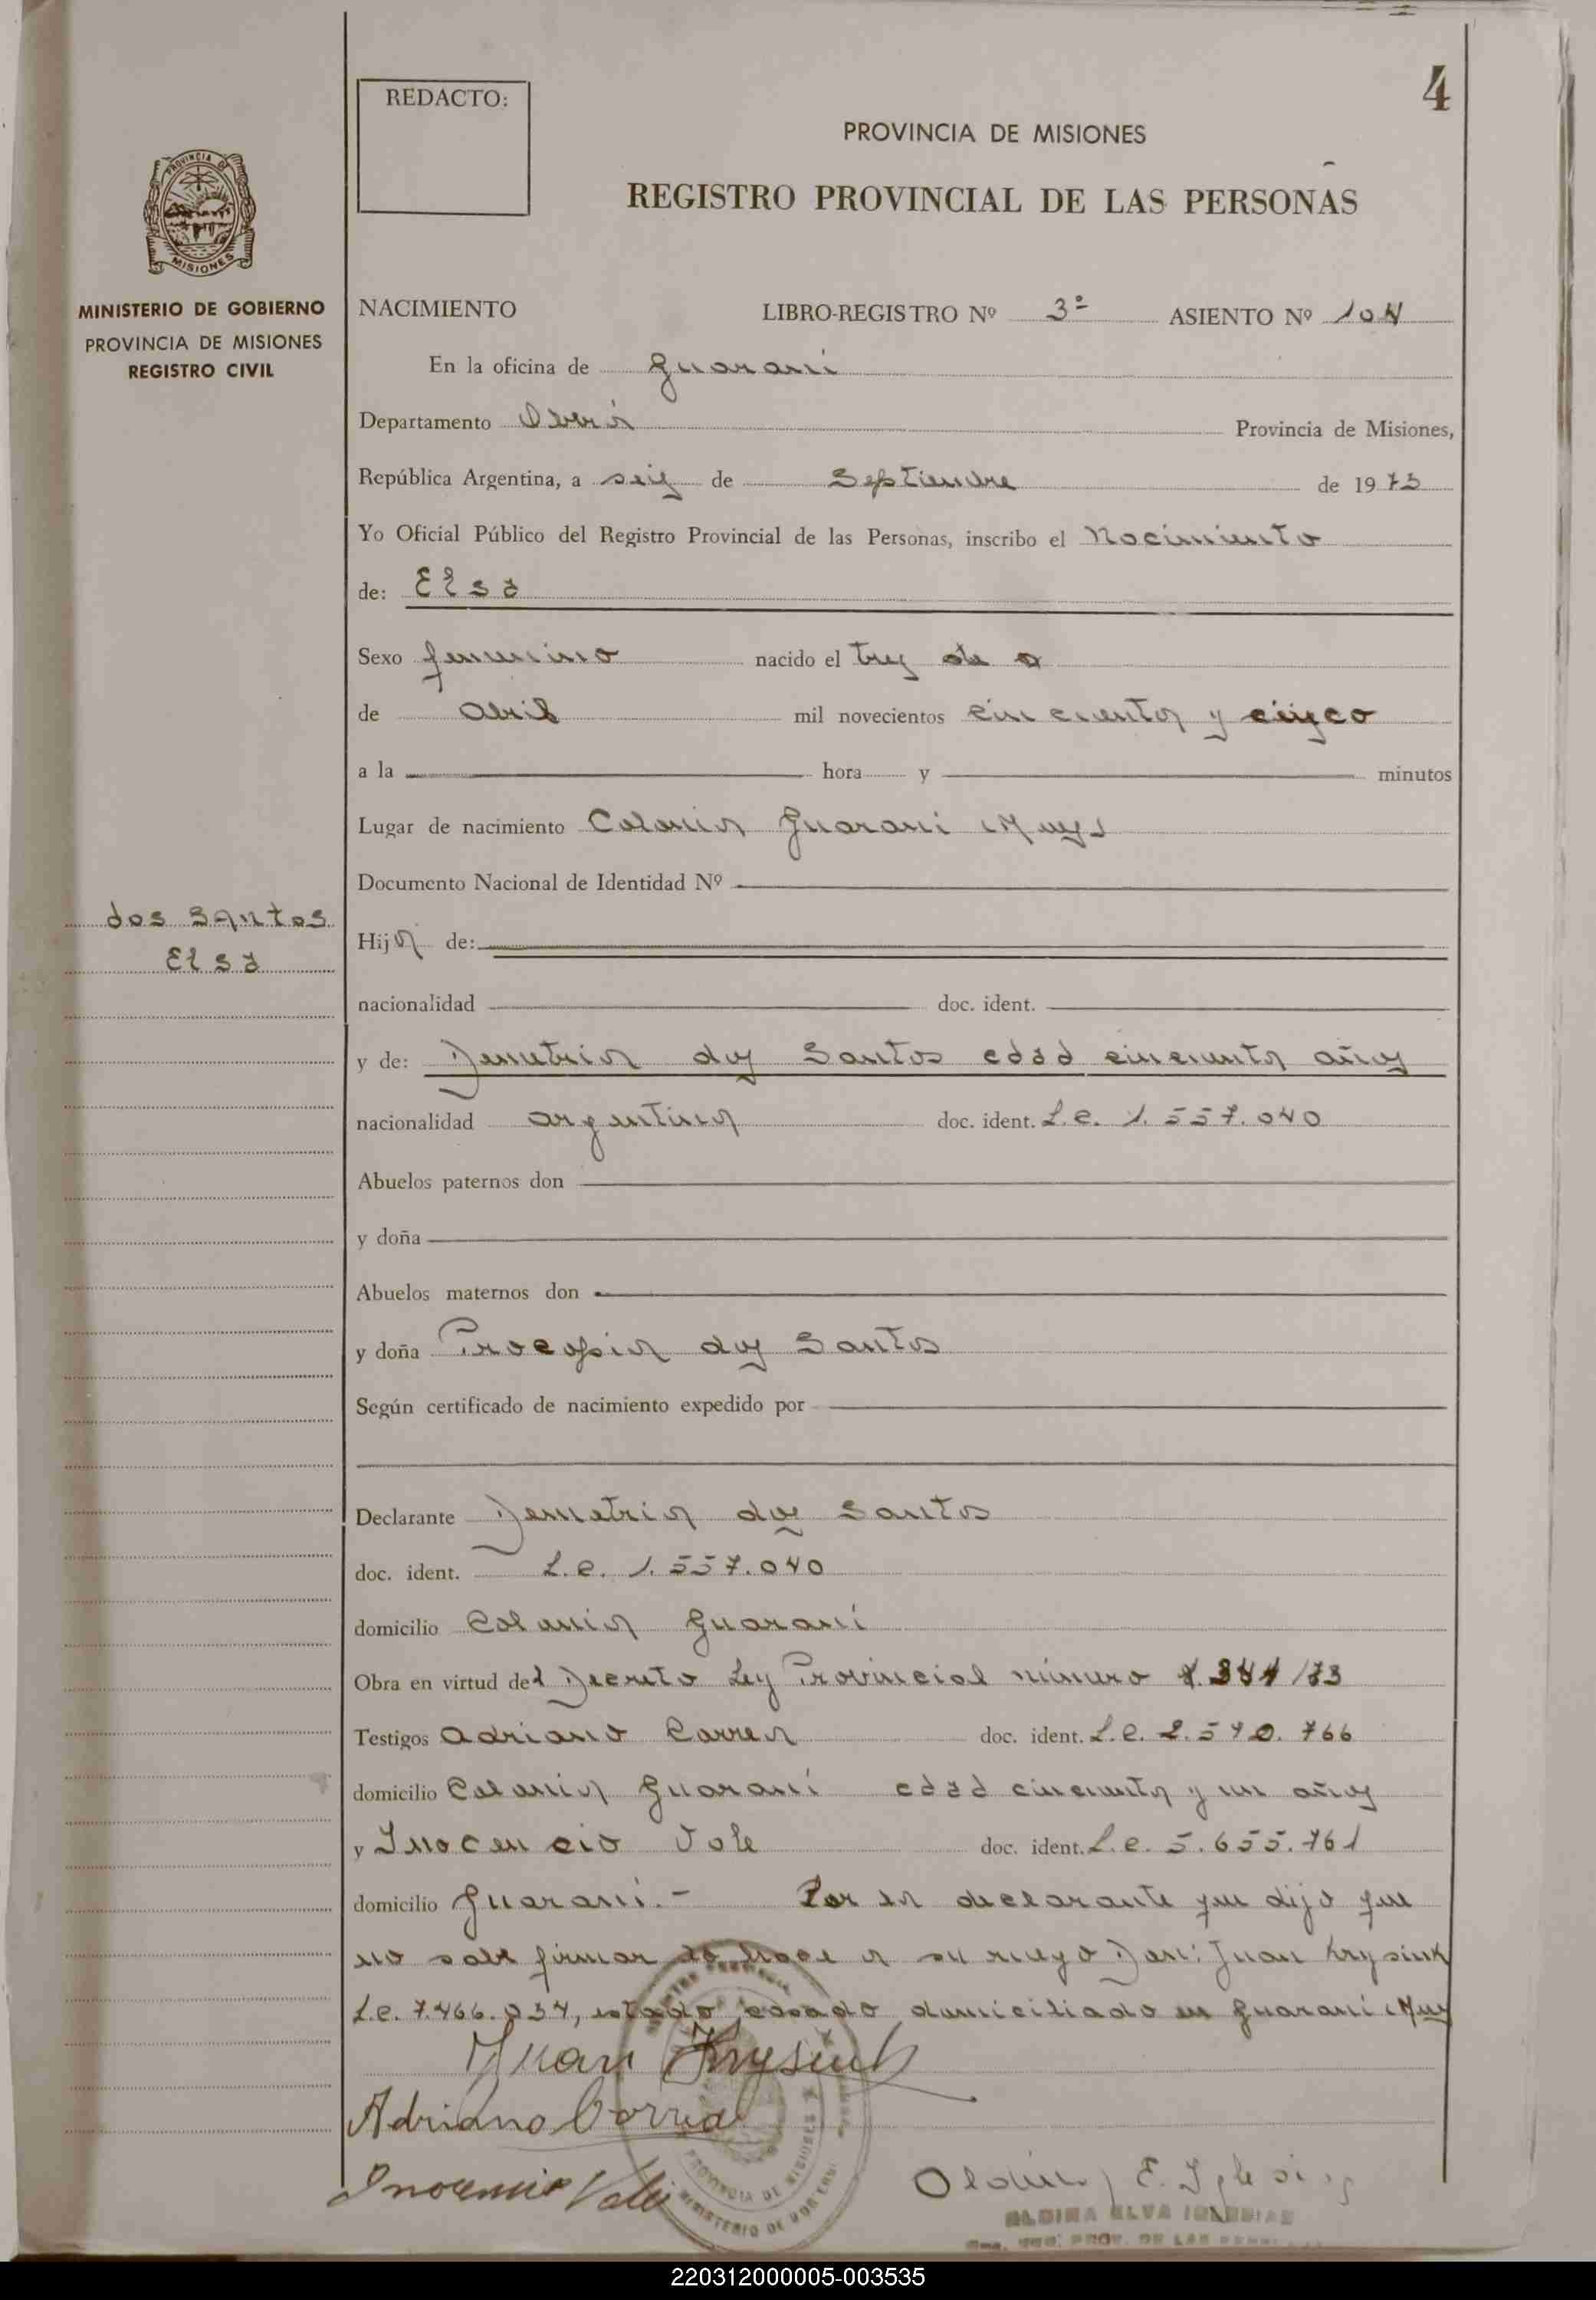 4
REDACTO:
PROVINCIA DE MISIONES
REGISTRO PROVINCIAL DE LAS PERSONAS
PROVINCIA DE
MISIONES
MINISTERIO DE GOBIERNO
PROVINCIA DE MISIONES
REGISTRO CIVIL
NACIMIENTO LIBRO-REGISTRO Nº 3º ASIENTO Nº 104
En la oficina de Guaraní
Departamento Oberá Provincia de Misiones,
República Argentina, a seis de Septiembre de 1973
Yo Oficial Público del Registro Provincial de las Personas, inscribo el Nacimiento
de: Elsa
Sexo femenino nacido el tres de
de Abril mil novecientos cincuenta y cinco
a la hora y minutos
Lugar de nacimiento Colonia Guaraní
Documento Nacional de Identidad Nº
dos Santos
Elsa
Hija de:
nacionalidad doc. ident.
y de: Demetria dos Santos edad cincuenta años
nacionalidad argentina doc. ident. L.C. 1.557.040
Abuelos paternos don
y doña
Abuelos maternos don
y doña Procopia dos Santos
Según certificado de nacimiento expedido por
Declarante Demetria dos Santos
doc. ident. L.C. 1.557.040
domicilio Colonia Guaraní
Obra en virtud del Decreto Ley Provincial número /73
Testigos Adriano Correa doc. ident. L.E. 2.570.766
domicilio Colonia Guaraní edad cincuenta y un años
y Inocencio Vole doc. ident. L.E. 5.655.761
domicilio Guaraní.- Por la declarante que dijo que
no sabe firmar lo hace a su ruego Don: Juan Krysiuk
L.E. 7.466.037, estado casado domiciliado en Guaraní
Juan Krysiuk
Adriano Correa
Inocencio
PROVINCIA DE MISIONES
MINISTERIO DE GOBIERNO
Oldina E. Iglesias
ELVA IGLESIAS
PROV. DE LAS
220312000005-003535